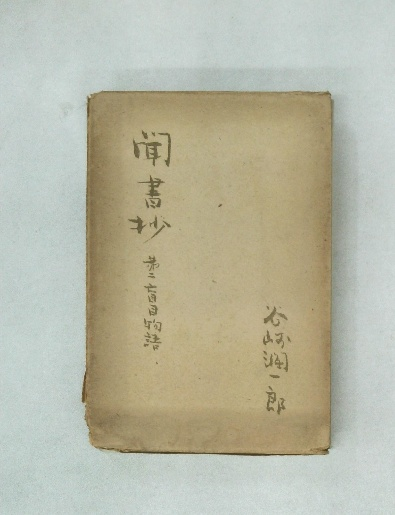 聞書抄
第二盲目物語
谷崎潤一郎